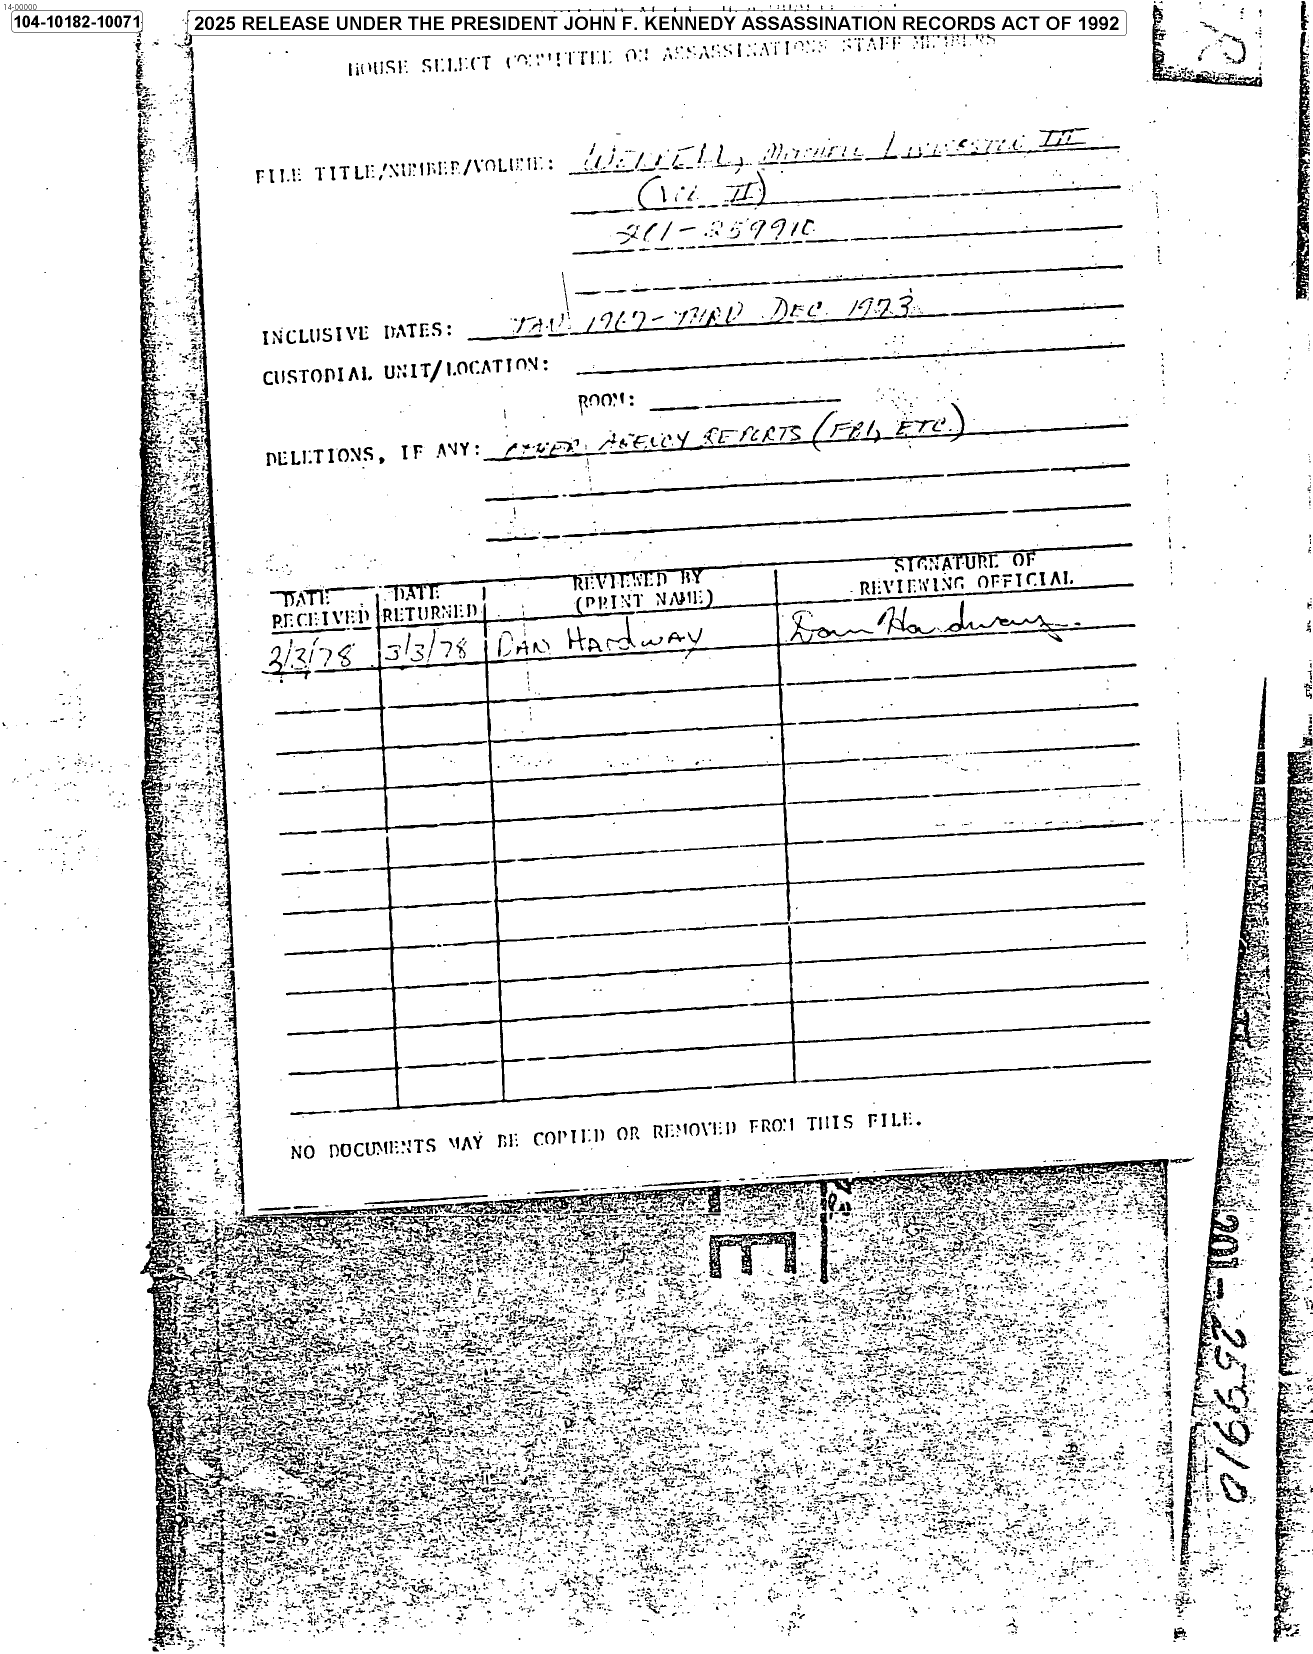 14-00000
104-10182-10071
2025 RELEASE UNDER THE PRESIDENT JOHN F. KENNEDY ASSASSINATION RECORDS ACT OF 1992
HOUSE SELECT COMMITTEE ON ASSASSINATIONS STAFF MEMBERS
FILE TITLE/NUMBER/VOLUME: WERBELL, Mitchell Livingston III
(Vol II)
201-259910
INCLUSIVE DATES: JAN 1967 - THRU DEC 1973
CUSTODIAL UNIT/LOCATION:
ROOM:
DELETIONS, IF ANY: OTHER AGENCY REPORTS (FBI, ETC.)
DATE RECEIVED DATE RETURNED REVIEWED BY (PRINT NAME) SIGNATURE OF REVIEWING OFFICIAL
3/3/78 3/3/78 DAN HARDWAY Dan Hardway
NO DOCUMENTS MAY BE COPIED OR REMOVED FROM THIS FILE.
E
201-259910